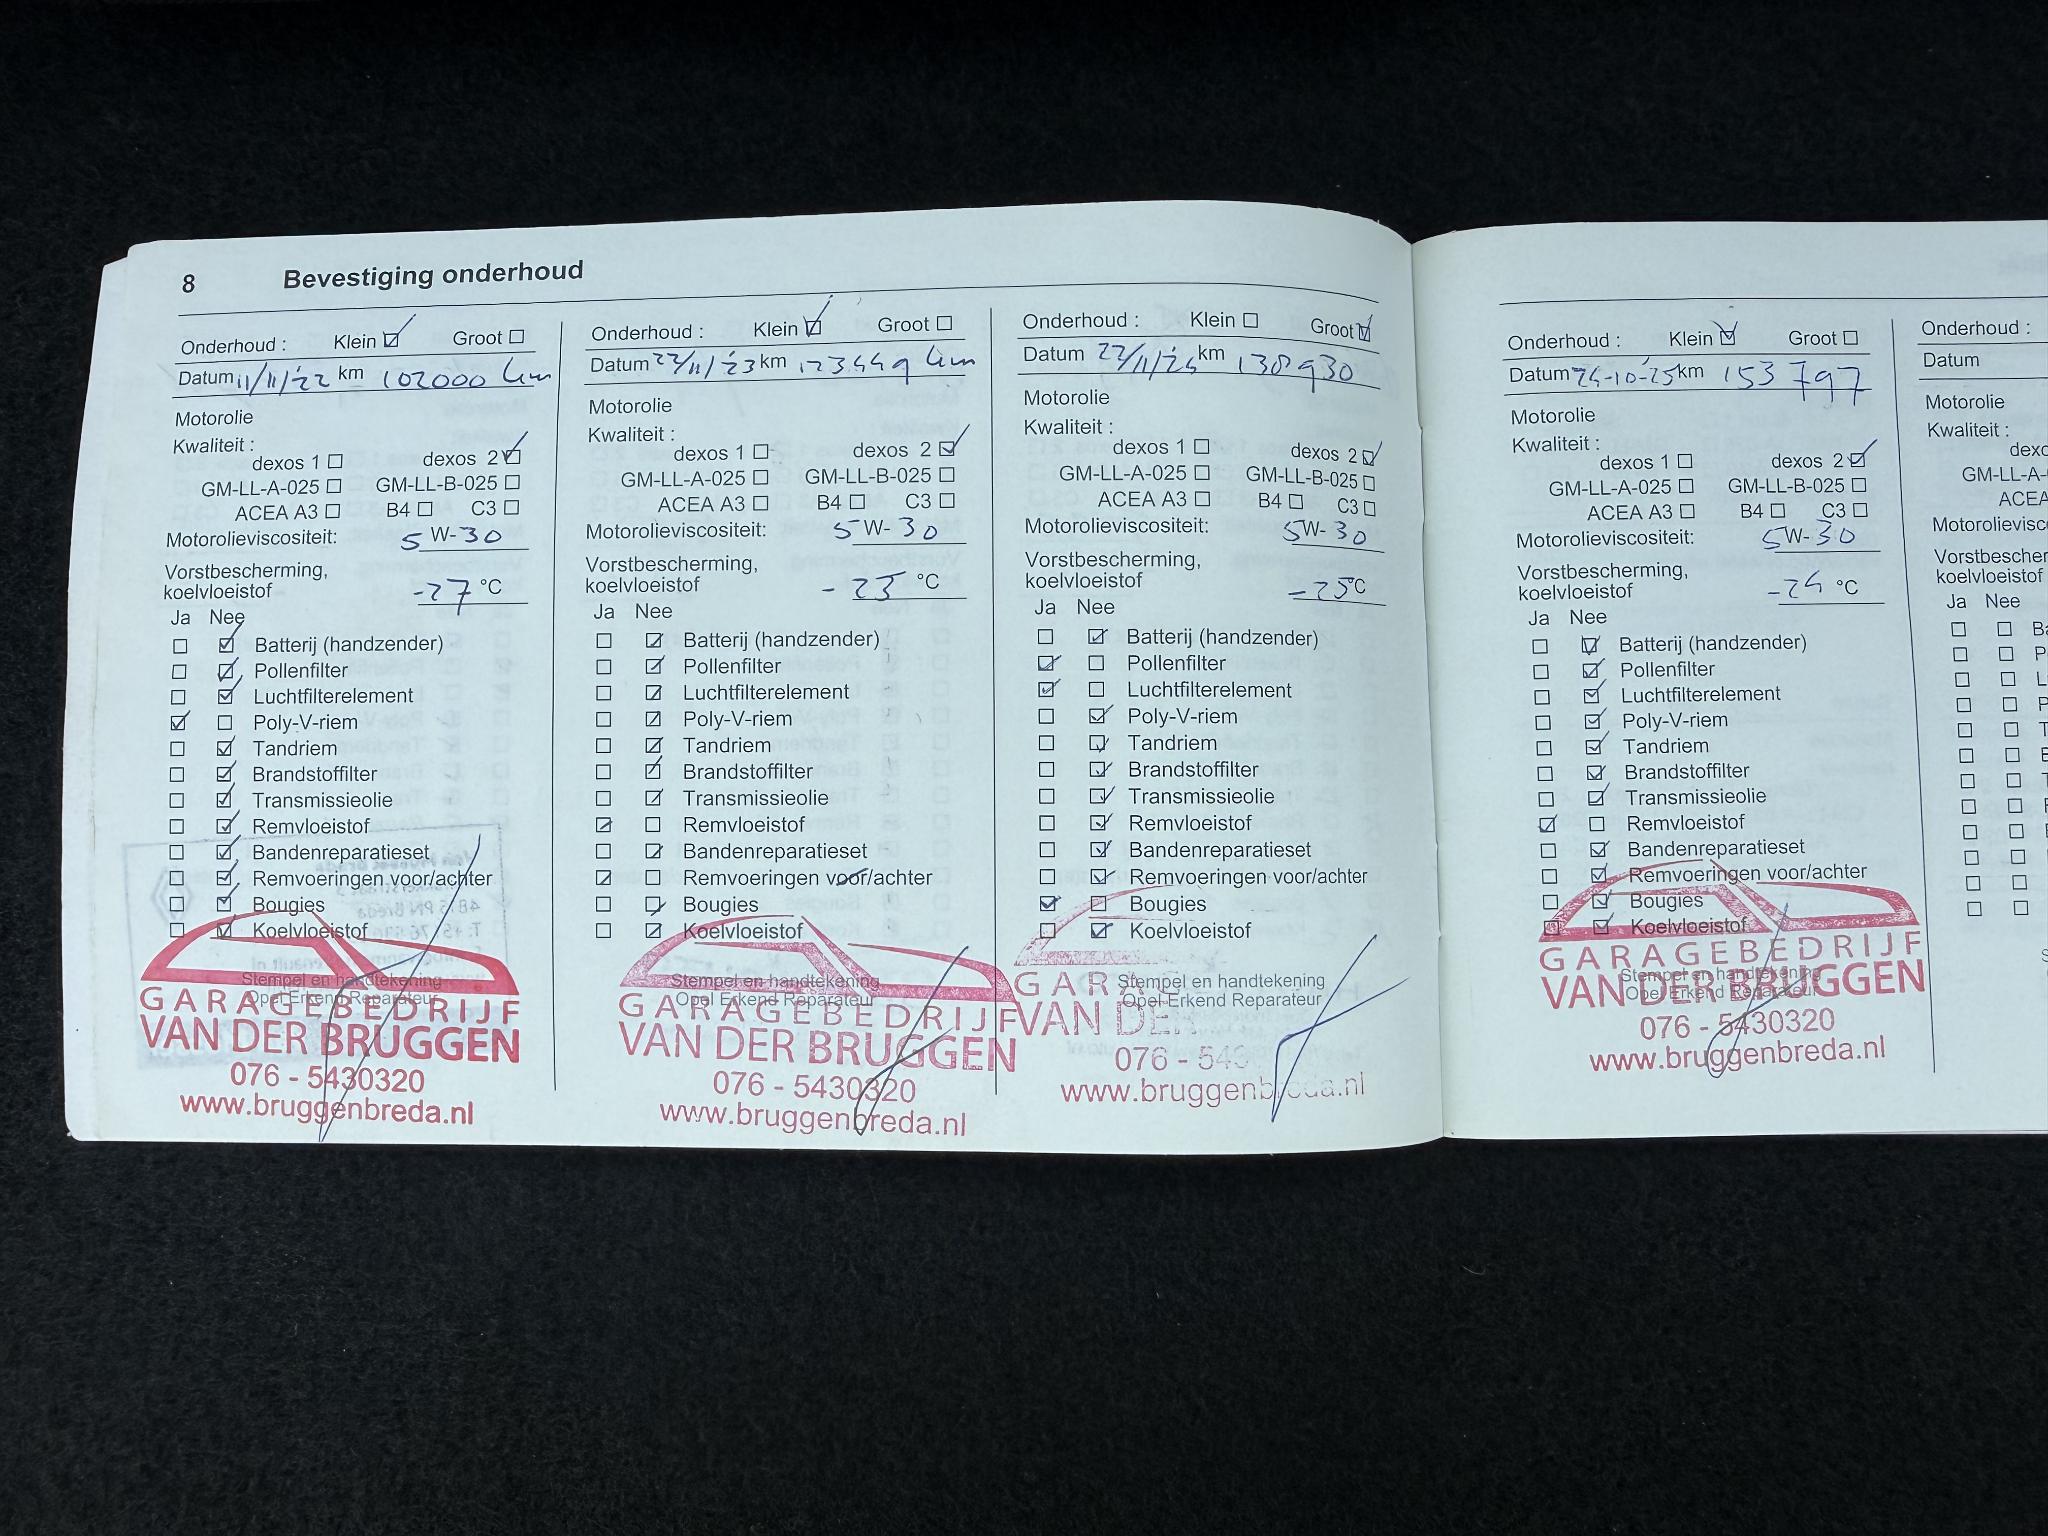 8 Bevestiging onderhoud
Onderhoud : Klein Groot
Datum 11/11/'22 km 102000 km
Motorolie
Kwaliteit :
dexos 1 dexos 2
GM-LL-A-025 GM-LL-B-025
ACEA A3 B4 C3
Motorolieviscositeit: 5 W-30
Vorstbescherming,
koelvloeistof -27 °C
Ja Nee
Batterij (handzender)
Pollenfilter
Luchtfilterelement
Poly-V-riem
Tandriem
Brandstoffilter
Transmissieolie
Remvloeistof
Bandenreparatieset
Remvoeringen voor/achter
Bougies
Koelvloeistof
Stempel en handtekening
Opel Erkend Reparateur
GARAGEBEDRIJF
VAN DER BRUGGEN
076 - 5430320
www.bruggenbreda.nl
Onderhoud : Klein Groot
Datum 22/11/'23 km 123449 km
Motorolie
Kwaliteit :
dexos 1 dexos 2
GM-LL-A-025 GM-LL-B-025
ACEA A3 B4 C3
Motorolieviscositeit: 5 W-30
Vorstbescherming,
koelvloeistof - 25 °C
Ja Nee
Batterij (handzender)
Pollenfilter
Luchtfilterelement
Poly-V-riem
Tandriem
Brandstoffilter
Transmissieolie
Remvloeistof
Bandenreparatieset
Remvoeringen voor/achter
Bougies
Koelvloeistof
Stempel en handtekening
Opel Erkend Reparateur
GARAGEBEDRIJF
VAN DER BRUGGEN
076 - 5430320
www.bruggenbreda.nl
Onderhoud : Klein Groot
Datum 22/11/'24 km 138930
Motorolie
Kwaliteit :
dexos 1 dexos 2
GM-LL-A-025 GM-LL-B-025
ACEA A3 B4 C3
Motorolieviscositeit: 5W-30
Vorstbescherming,
koelvloeistof -25°C
Ja Nee
Batterij (handzender)
Pollenfilter
Luchtfilterelement
Poly-V-riem
Tandriem
Brandstoffilter
Transmissieolie
Remvloeistof
Bandenreparatieset
Remvoeringen voor/achter
Bougies
Koelvloeistof
Stempel en handtekening
Opel Erkend Reparateur
GARA
VAN DE
076 - 543
www.bruggenbreda.nl
Onderhoud : Klein Groot
Datum 24-10-25 km 153 797
Motorolie
Kwaliteit :
dexos 1 dexos 2
GM-LL-A-025 GM-LL-B-025
ACEA A3 B4 C3
Motorolieviscositeit: 5W-30
Vorstbescherming,
koelvloeistof -24 °C
Ja Nee
Batterij (handzender)
Pollenfilter
Luchtfilterelement
Poly-V-riem
Tandriem
Brandstoffilter
Transmissieolie
Remvloeistof
Bandenreparatieset
Remvoeringen voor/achter
Bougies
Koelvloeistof
Stempel en handtekening
Opel Erkend Reparateur
GARAGEBEDRIJF
VAN DER BRUGGEN
076 - 5430320
www.bruggenbreda.nl
Onderhoud :
Datum
Motorolie
Kwaliteit :
dexo
GM-LL-A-
ACEA
Motorolievisco
Vorstbescher
koelvloeistof
Ja Nee